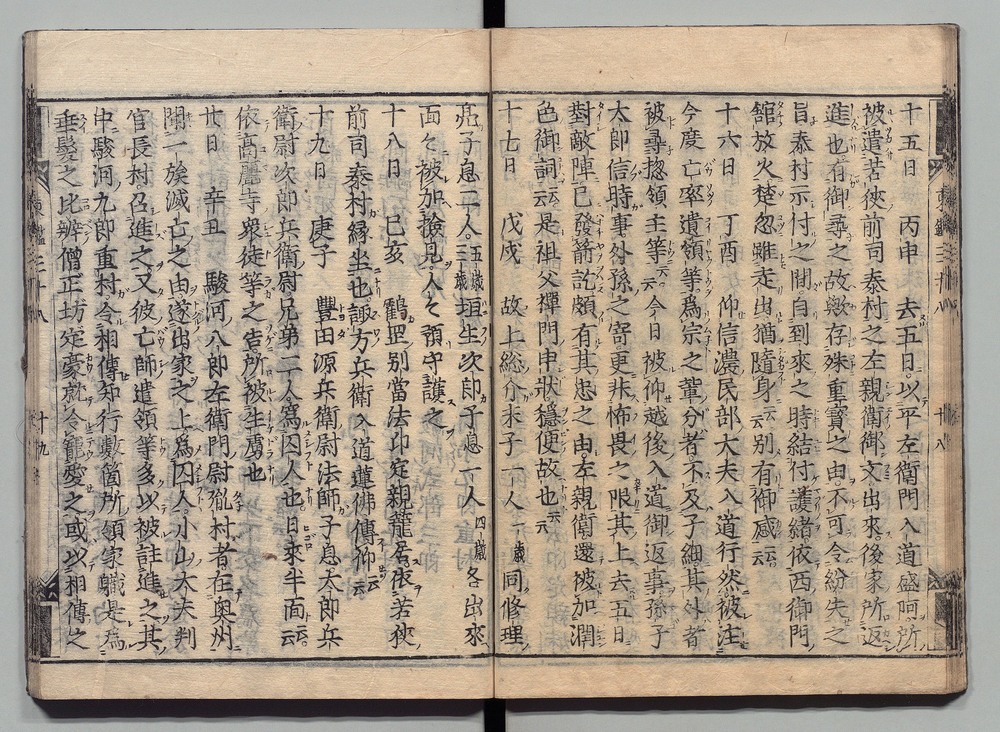 十五日 丙申 去五日以平左衛門入道盛阿所
被遣若狹前司泰村之左親衛御文出來後家所返
進也有御尋之故歟存殊重寶之由不可令紛失之
旨泰村示付之間自到來之時結付護緒依西御門
舘放火楚忽雖走出猶隨身云云別有御感云云
十六日 丁酉 仰信濃民部大夫入道行然被注
今度亡卒遺領等爲宗之輩分者不及子細其外者
被尋惣領主等云云今日被仰越後入道御返事孫子
太郎信時事外孫之寄更非怖畏之限其上去五日
對敵陣已發箭訖頗有其忠之由左親衛還被加潤
色御詞云云是祖父禪門申狀穩便故也云云
十七日 戊戌 故上総介末子一人一歳同修理
亮子息二人五歳三歳垣生次郎子息一人四歳各出來
面々被加撿見人々預守護之
十八日 己亥 鶴罡別當法印定親籠居依若狹
前司泰村縁坐也諏方兵衛入道蓮佛傳仰云云
十九日 庚子 豐田源兵衛尉法師子息太郎兵
衛尉次郎兵衛尉兄弟二人爲囚人也日來半面云云
依高麗寺衆徒等之告所被生虜也
廿日 辛丑 駿河八郎左衛門尉胤村者在奥州
聞一族滅亡之由遂出家之上爲囚人小山大夫判
官長村召進之又彼亡師遺領等多以被註進之其
中駿河九郎重村令相傳知行數箇所領家職是爲
垂髮之比辨僧正坊定豪就令寵愛之或以相傳之